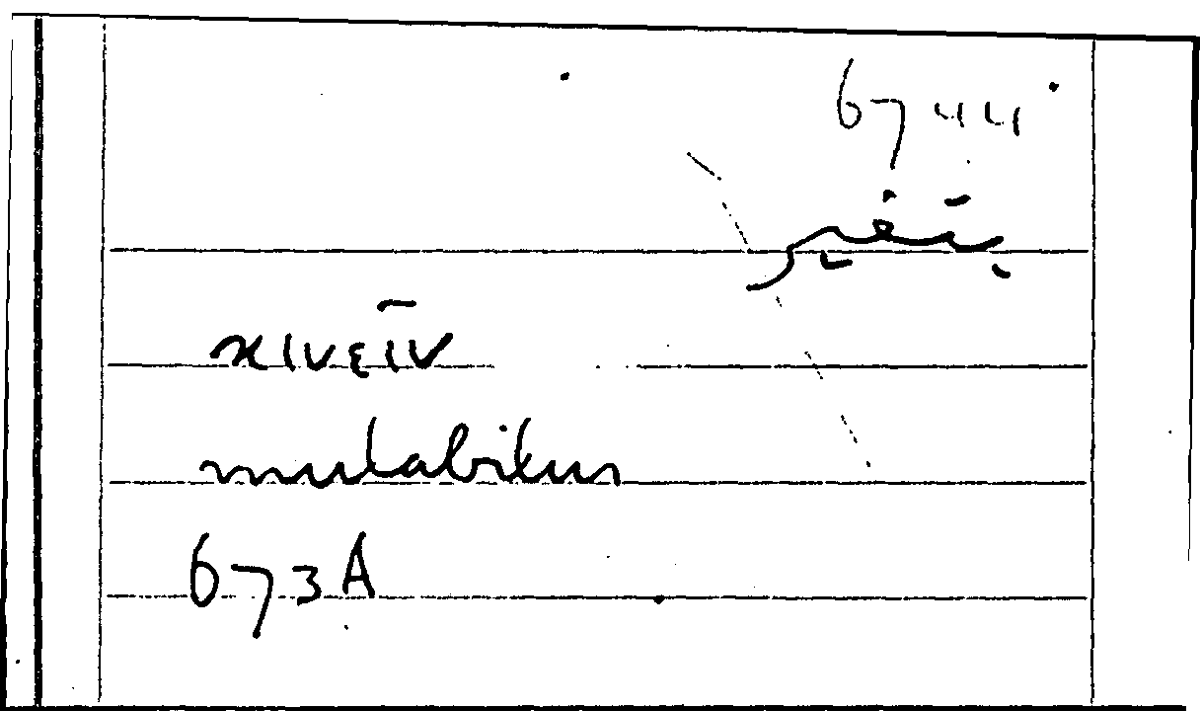 6744
بتغير
κινεῖν
mutabilem
673A